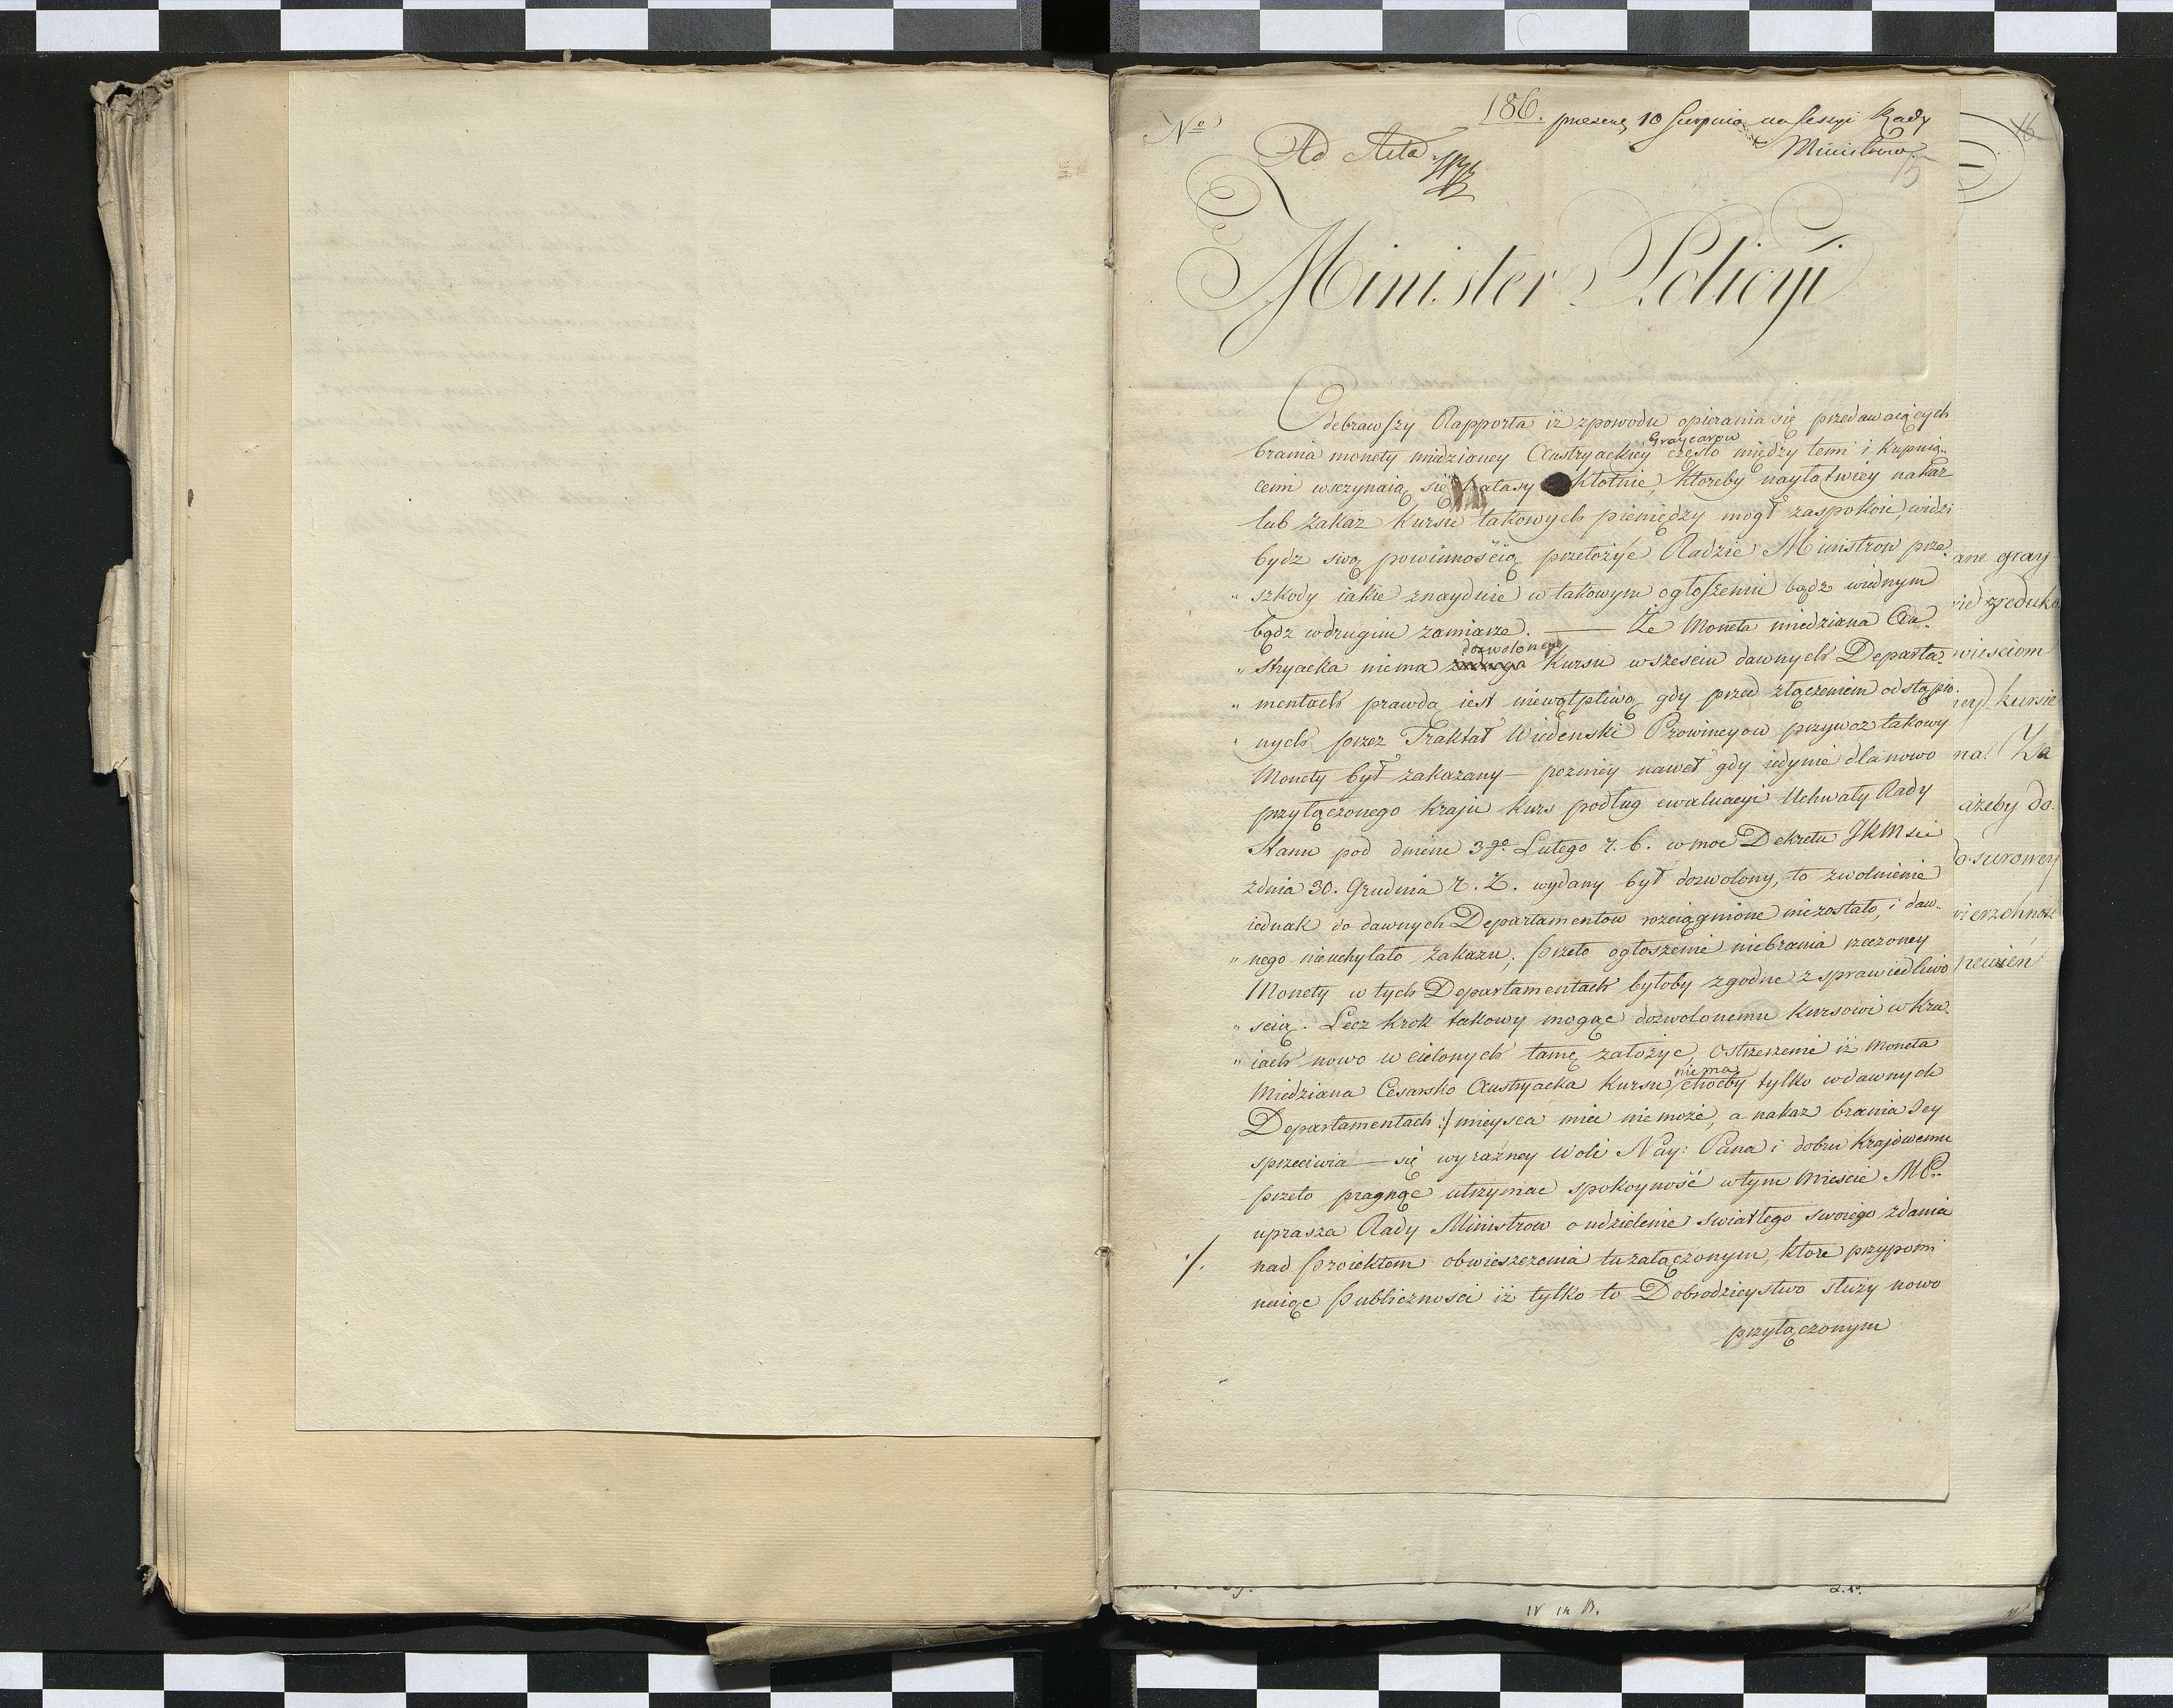 No
186. prezent. 10 Sierpnia na Sessyi Rady
Ministrow.
15
Ad Acta
Minister Policyi
Odebrawszy Rapporta iż zpowodu opierania się przedawaiących
brania monety miedzianey Austryackiey Graycarow często między temi i kupuią„
cemi wszczynaią się hałasy kłotnie, ktoreby nayłatwiey nakaz
lub zakaz kursu takowych pieniędzy mogł zaspokoić, widzi
bydz swą powinnością przełożyć Radzie Ministrow prze„
„szkody iakie znayduie w takowym ogłoszeniu bądz wiednym
bądz wdrugim zamiarze. — Że Moneta miedziana Au„
„stryacka niema dozwolonego kursu wsześciu dawnych Departa„
„mentach prawdą iest niewątpliwą gdy przed złączeniem odstąpio„
„nych przez Traktat Wiedenski Prowincyow przywoz takowy
Monety był zakazany — pozniey nawet gdy iedynie dla nowo
przyłączonego kraju kurs podług ewaluacyi Uchwały Rady
Stanu pod dniem 3go Lutego r. b. w moc Dekretu JKMsci
zdnia 30. Grudnia r. z. wydany był dozwolony, to zwolnienie
iednak do dawnych Departamentow rozciągnione niezostało, i daw„
„nego nieuchylało zakazu; przeto ogłoszenie niebrania rzeczoney
Monety w tych Departamentach byłoby zgodne z sprawiedliwo
„scią. Lecz krok takowy mogąc dozwolonemu kursowi w Kra„
„iach nowo wcielonych tamę założyc, ostrzerzenie iż moneta
Miedziana Cesarsko Austryacka kursu niema choćby tylko wdawnych
Departamentach :/ mieysca miec niemoże, a nakaz brania Jey
sprzeciwia — się wyrazney Woli Nay: Pana i dobru Krajowemu
przeto pragnąc utrzymac spokoyność wtym Miescie MP.
uprasza Rady Ministrow oudzielenie swiatłego swoiego zdania
·/. nad Proiektem obwieszczenia tuzałączonym, ktore przypomi
naiąc Publicznosci iż tylko to Dobrodzieystwo służy nowo
przyłączonym
16
ane gray
zreduko
wieściom
kursie
na. Za
ażeby do
surowey
wierzchność